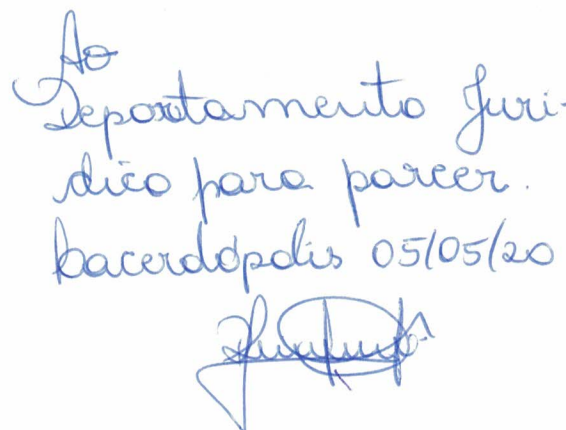 Ao
Departamento Juri-
dico para parcer.
Lacerdópolis 05/05/20